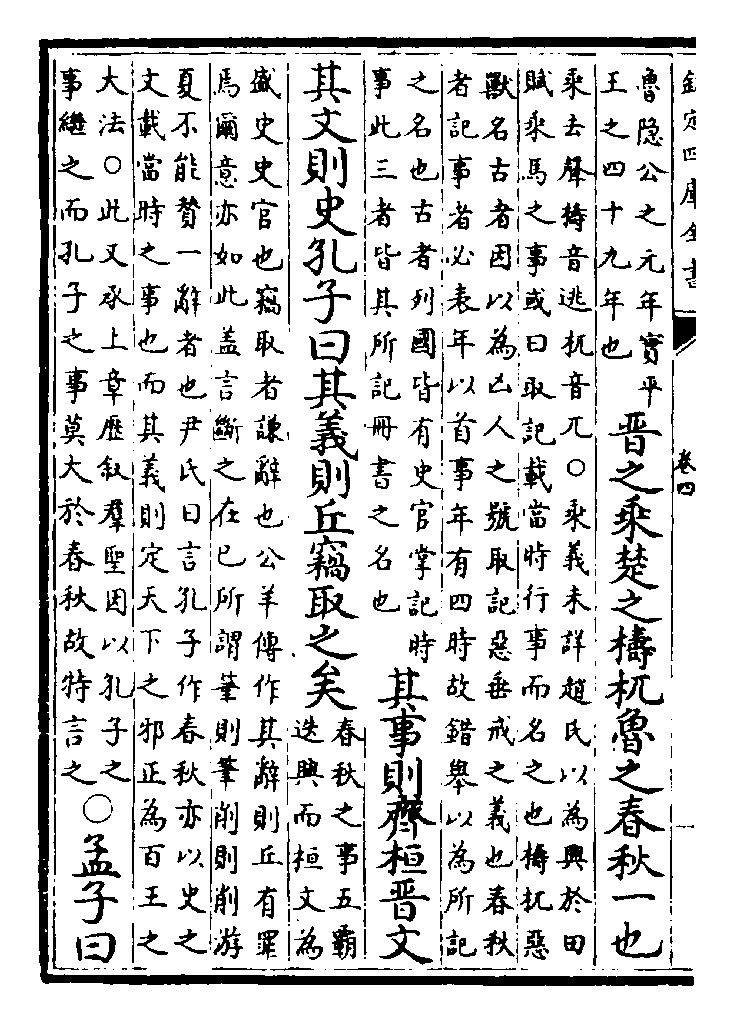 欽定四庫全書
卷四
魯隐公之元年實平
王之四十九年也
晉之乘楚之檮杌魯之春秋一也
乘去聲檮音逃杌音兀○乘義未詳趙氏以為興於田
賦乘馬之事或曰取記載當時行事而名之也檮杌惡
獸名古者因以為凶人之號取記惡垂戒之義也春秋
者記事者必表年以首事年有四時故錯舉以為所記
之名也古者列國皆有史官掌記時
事此三者皆其所記冊書之名也
其事則齊桓晉文
其文則史孔子曰其義則丘竊取之矣
春秋之事五霸
迭興而桓文為
盛史史官也竊取者謙辭也公羊傳作其辭則丘有罪
焉爾意亦如此盖言斷之在已所謂筆則筆削則削游
夏不能贊一辭者也尹氏曰言孔子作春秋亦以史之
文載當時之事也而其義則定天下之邪正為百王之
大法○此又承上章歷叙羣聖因以孔子之
事繼之而孔子之事莫大於春秋故特言之
○孟子曰